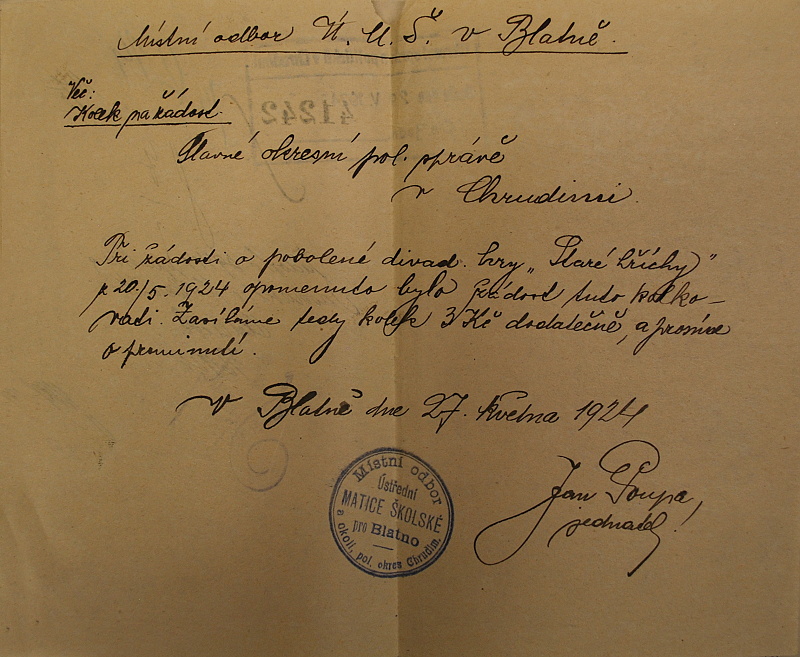 Místní odbor Ú. M. Š. v Blatně.
Věc:
Kolek na žádost.
Slavné okresní pol. správě
v Chrudimi.
Při žádosti o povolené divad. hry „Staré hříchy”
z 20./5. 1924 opomenuto bylo žádost tuto kolko-
vati. Zasíláme tedy kolek 3 Kč dodatečně, a prosíme
o prominutí.
V Blatně dne 27. května 1924
Jan Poupa,
jednatel!
Místní odbor
Ústřední
MATICE ŠKOLSKÉ
pro Blatno
a okolí, pol. okres Chrudim.
41242